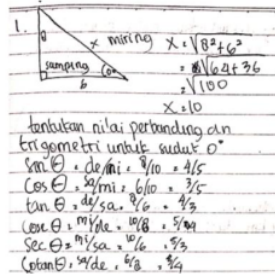 1.
θ
x miring x = √8²+6²
samping = √64+36
6 = √100
x = 10
tentukan nilai perbandingan
trigometri untuk sudut 0°
Sin θ = de/mi = 8/10 = 4/5
Cos θ = sa/mi = 6/10 = 3/5
tan θ = de/sa = 8/6 = 4/3
cosec θ = mi/de = 10/8 = 5/4
Sec θ = mi/sa = 10/6 = 5/3
Cotan θ = sa/de = 6/8 = 3/4